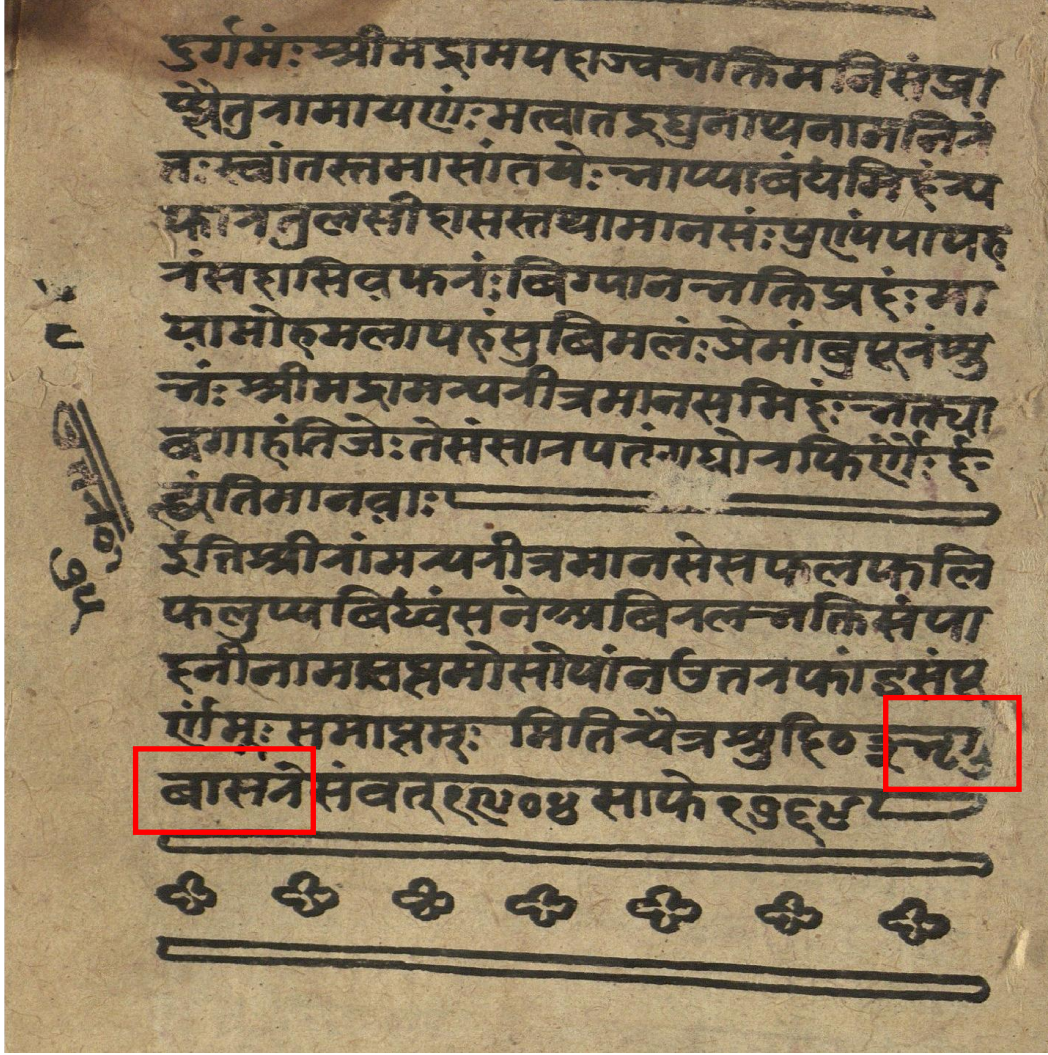 दुर्गमंः श्रीमद्रामपदाब्जभक्तिमनिसंप्रा
प्त्यैतुरामायणंः मत्वातद्रघुनाथनामनिरं
तःस्वांतस्तमासांतयेः भाषाबंधमिदंच
कारतुलसीदासस्तथामानसंः पुण्यंपापह
रंसदासिवकरंः बिग्यानभक्तिप्रदंः मा
यामोहमलापहंसुबिमलंः प्रेमांबुपूरंसु
भंः श्रीमद्रामचरीत्रमानसमिदंः भक्त्या
बगाहंतिजेः तेसंसारपतंगघोरकिर्णैः द
ह्यंतिमानवाः
ईतिश्रीरांमचरीत्रमानसेसकलकलि
कलुषबिध्वंसनेअबिरलभक्तिसंपा
दनीनामसप्तमोसोपांनउतरकांडसंपू
र्णमः समाप्तमः मितिचैत्रसुदि भृगु
बासरे संवत् १९०४ साके १७६९